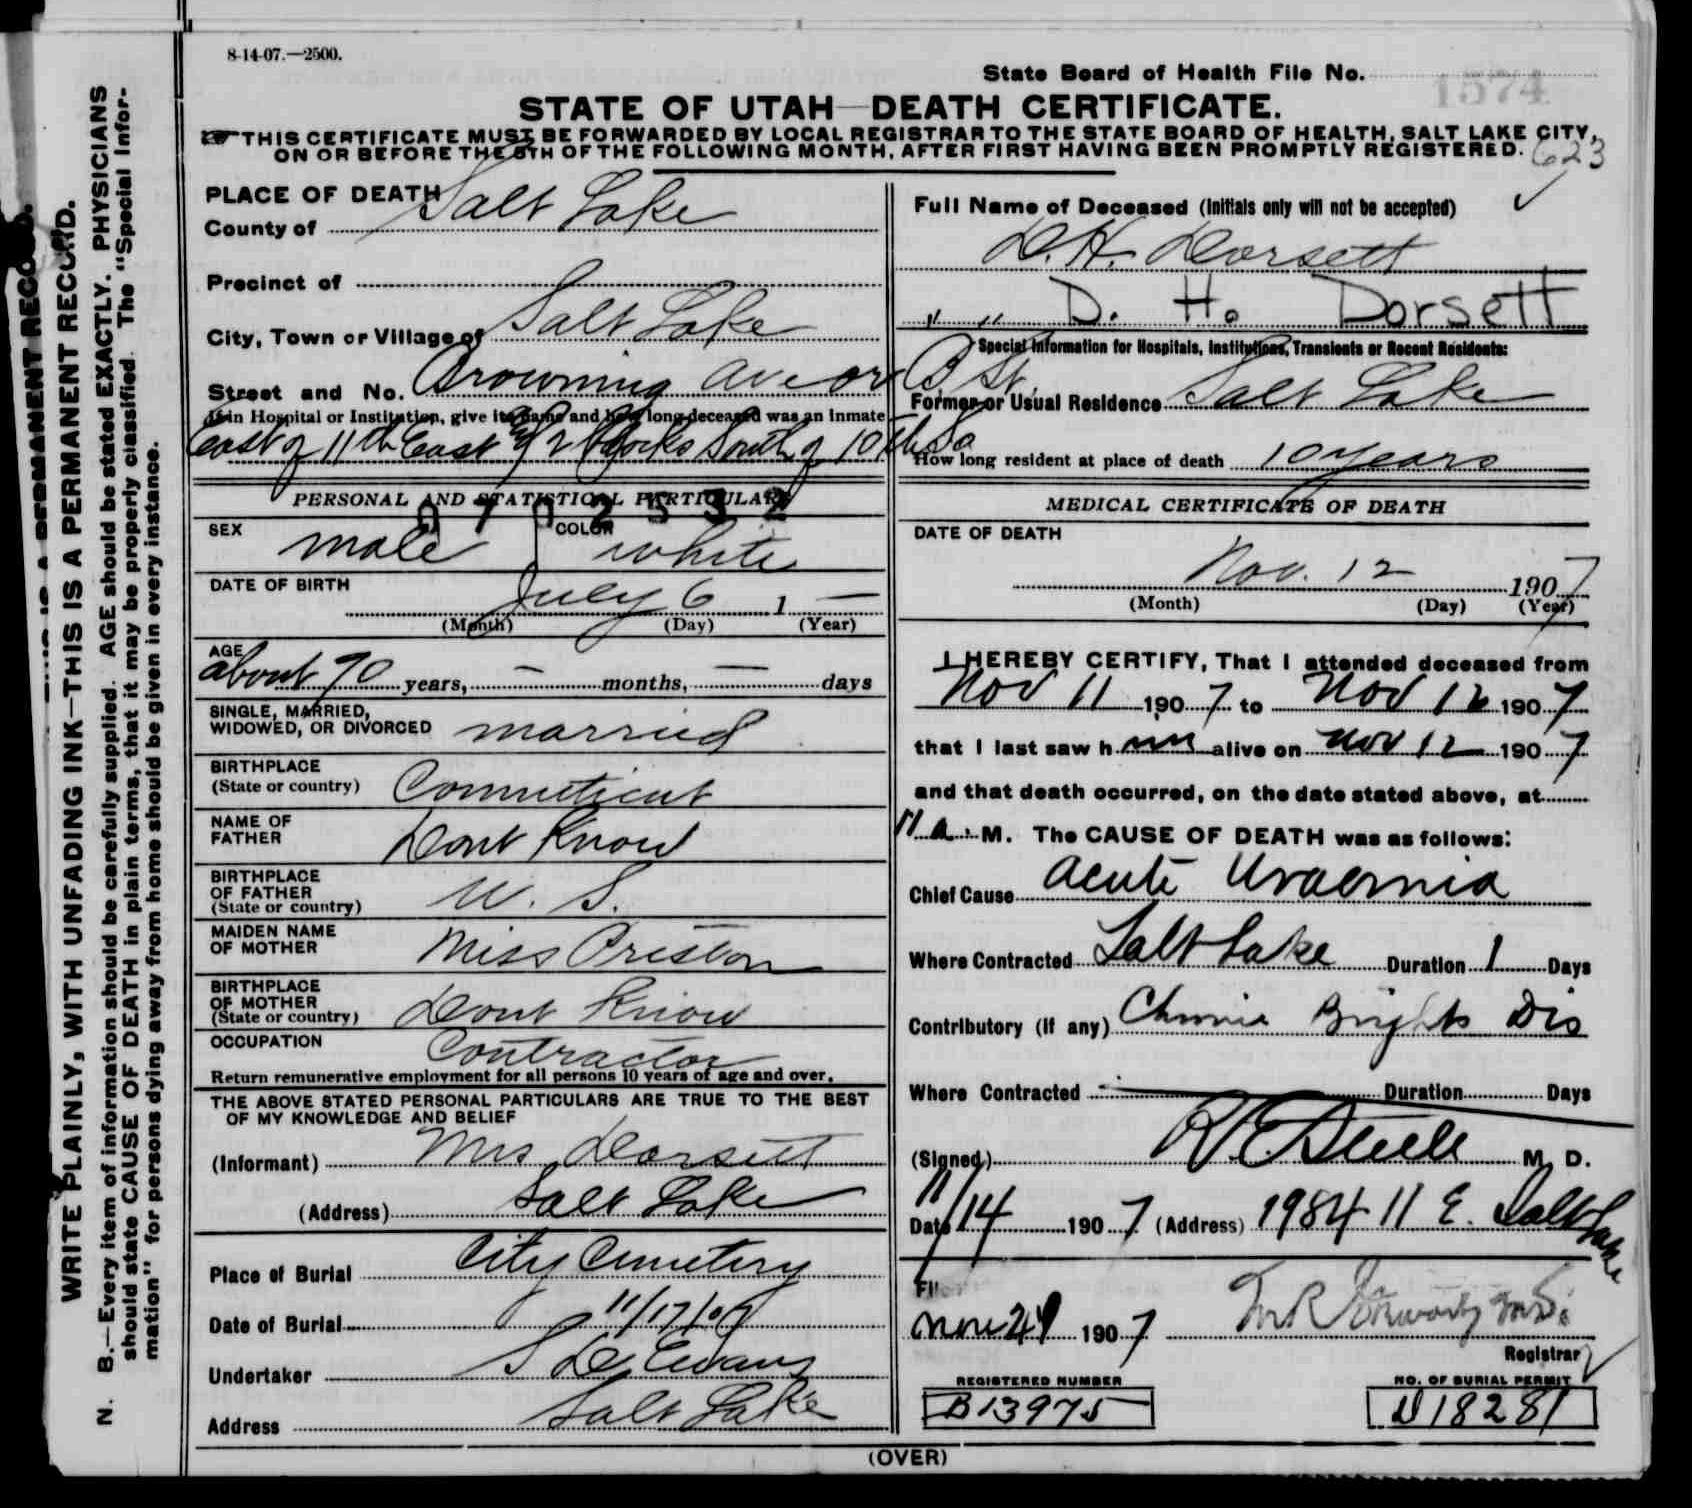 8-14-07.—2500.
State Board of Health File No. 1574
STATE OF UTAH—DEATH CERTIFICATE.
THIS CERTIFICATE MUST BE FORWARDED BY LOCAL REGISTRAR TO THE STATE BOARD OF HEALTH, SALT LAKE CITY,
ON OR BEFORE THE 5TH OF THE FOLLOWING MONTH, AFTER FIRST HAVING BEEN PROMPTLY REGISTERED. 623
WRITE PLAINLY, WITH UNFADING INK—THIS IS A PERMANENT RECORD.
N. B.—Every item of information should be carefully supplied. AGE should be stated EXACTLY. PHYSICIANS
should state CAUSE OF DEATH in plain terms, that it may be properly classified. The "Special Infor-
mation" for persons dying away from home should be given in every instance.
PLACE OF DEATH
County of Salt Lake
Precinct of
City, Town or Village of Salt Lake
Street and No. Browning Ave or B St.
If in Hospital or Institution, give its name and how long deceased was an inmate
East of 11th East 2 Blocks South of 10th So
PERSONAL AND STATISTICAL PARTICULARS
0702532
SEX male COLOR white
DATE OF BIRTH
July 6 1 —
(Month) (Day) (Year)
AGE
about 70 years, — months, — days
SINGLE, MARRIED,
WIDOWED, OR DIVORCED married
BIRTHPLACE
(State or country) Connecticut
NAME OF
FATHER Dont Know
BIRTHPLACE
OF FATHER
(State or country) U. S.
MAIDEN NAME
OF MOTHER Miss Preston
BIRTHPLACE
OF MOTHER
(State or country) Dont Know
OCCUPATION Contractor
Return remunerative employment for all persons 10 years of age and over.
THE ABOVE STATED PERSONAL PARTICULARS ARE TRUE TO THE BEST
OF MY KNOWLEDGE AND BELIEF
(Informant) Mrs Dorsett
(Address) Salt Lake
Place of Burial City Cemetery
Date of Burial 11/17/07
Undertaker S D Evans
Address Salt Lake
Full Name of Deceased (Initials only will not be accepted)
D. H. Dorsett
" " D. H. Dorsett
Special Information for Hospitals, Institutions, Transients or Recent Residents:
Former or Usual Residence Salt Lake
How long resident at place of death 10 years
MEDICAL CERTIFICATE OF DEATH
DATE OF DEATH
Nov. 12 1907
(Month) (Day) (Year)
I HEREBY CERTIFY, That I attended deceased from
Nov 11 1907 to Nov 12 1907
that I last saw him alive on Nov 12 1907
and that death occurred, on the date stated above, at
11 a. M. The CAUSE OF DEATH was as follows:
Chief Cause Acute Uraemia
Where Contracted Salt Lake Duration 1 Days
Contributory (if any) Chronic Brights Dis
Where Contracted Duration Days
(Signed) M. D.
Date 11/14 1907 (Address) 1984 11 E. Salt Lake
Filed
Nov 21 1907
Registrar
REGISTERED NUMBER
B13975
NO. OF BURIAL PERMIT
D18281
(OVER)